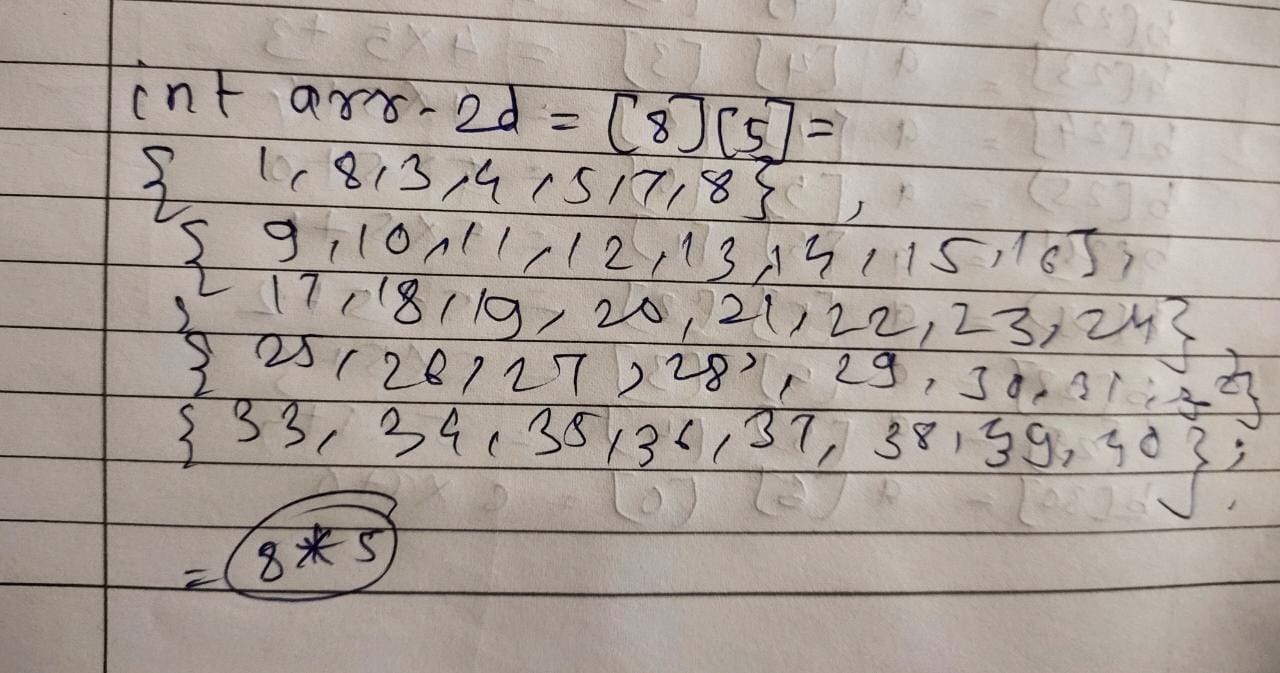 int arr-2d = [8][5]=
{ 1, 8,3,4,5,7,8},
{ 9,10,11,12,13,14,15,16},
{ 17,18,19,20,21,22,23,24}
{ 25,26,27,28,29,30,31,32}
{ 33,34,35,36,37,38,39,40};
= 8*5